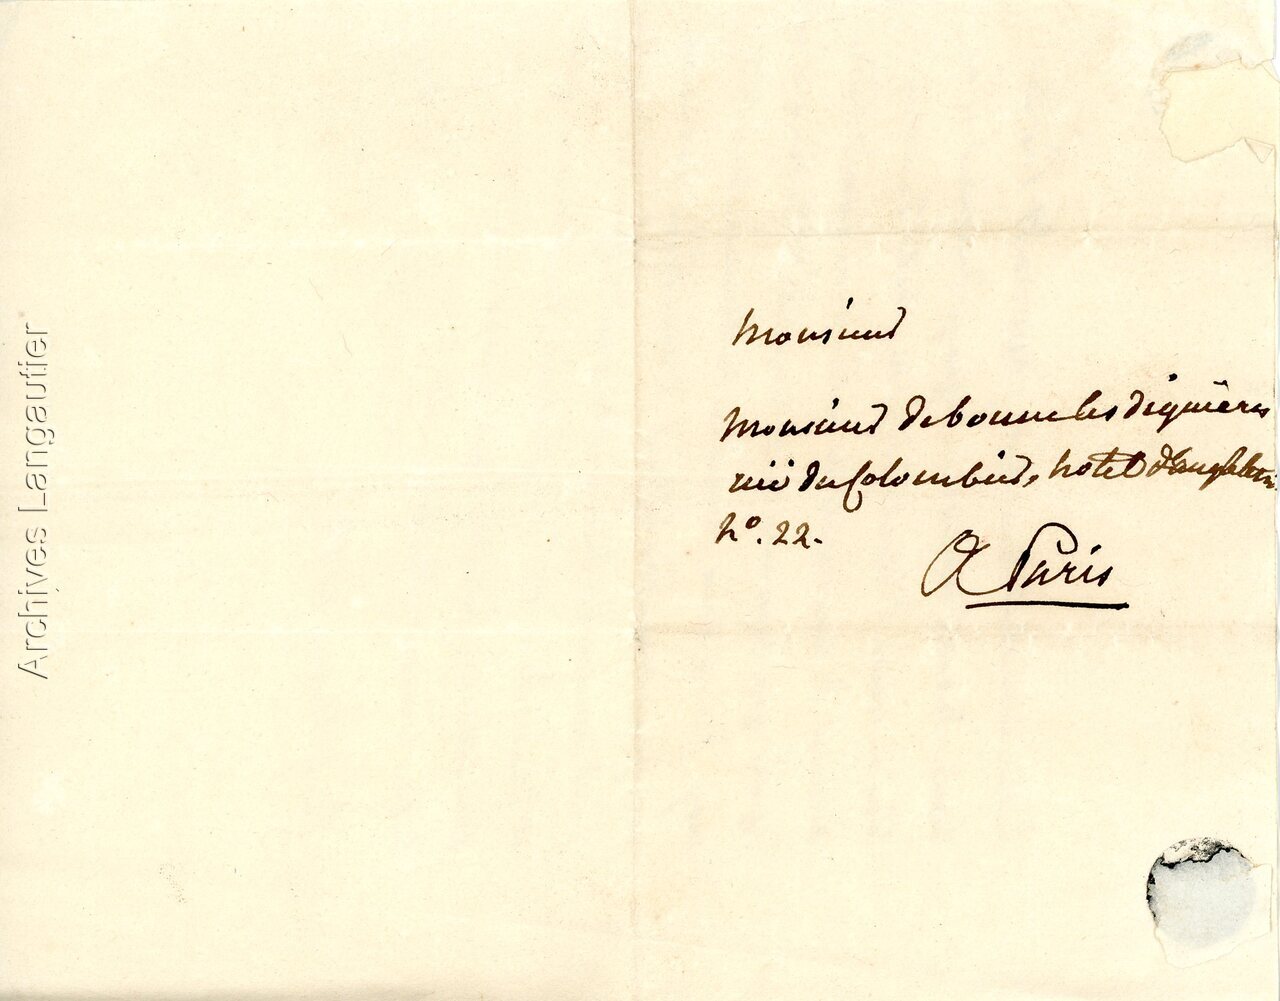 Monsieur
Monsieur de bonne les diguières
rüe du Colombier, hotel d'angleterre
n.º 22.
A Paris
Archives Langautier